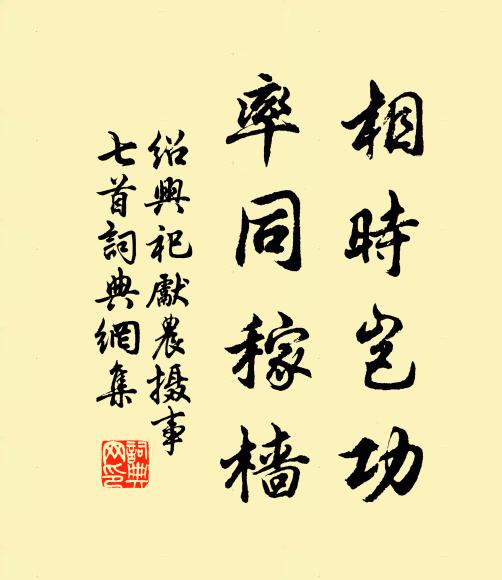 相時岂功
率同稼檣
紹興祀獻農摄事
七首詞典網集
詞典
网印